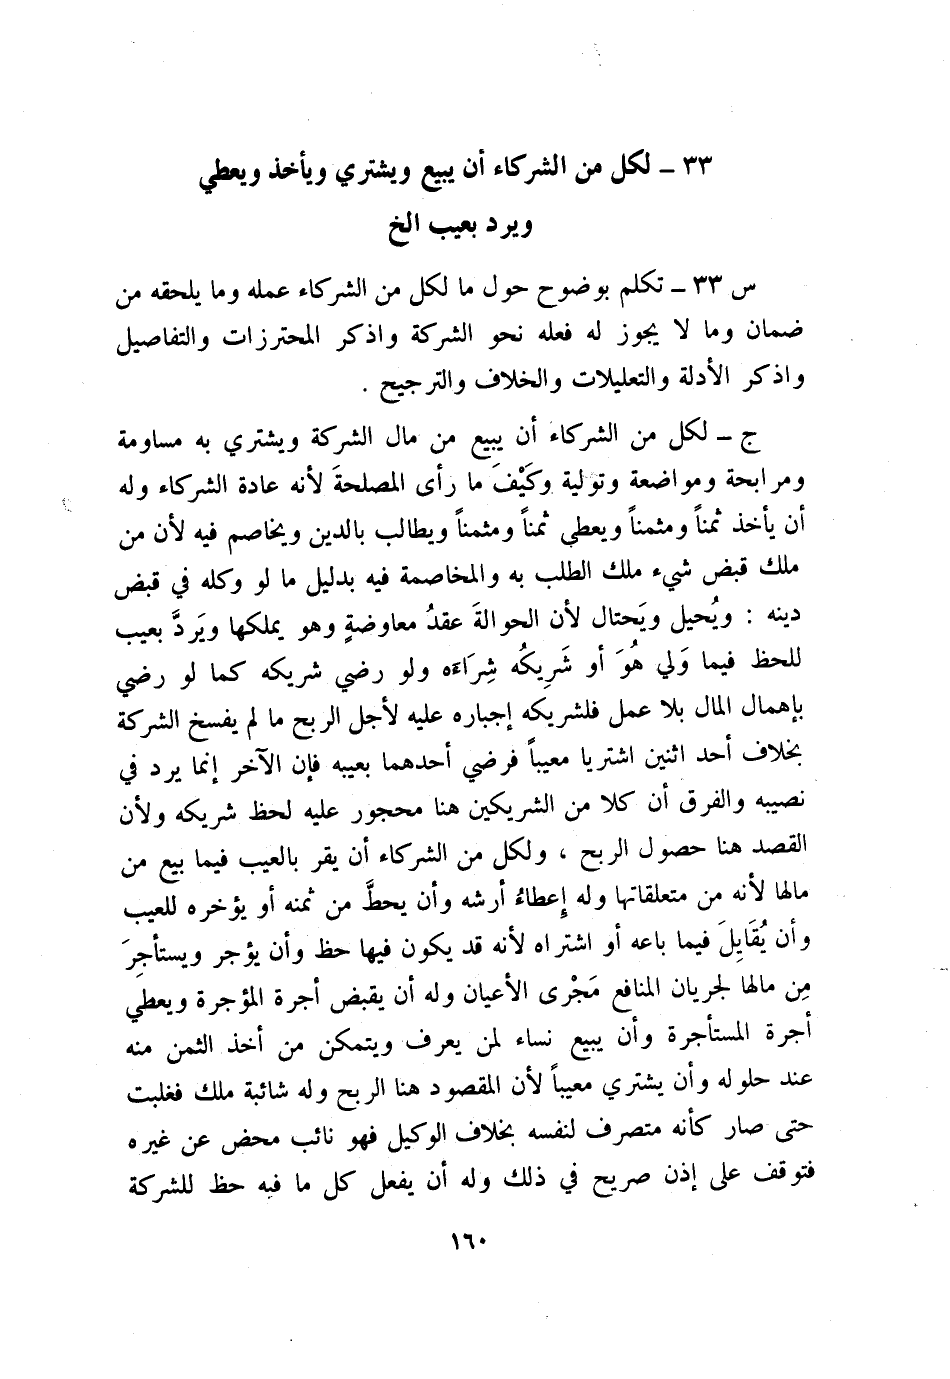 ٣٣ ـ لكل من الشركاء أن يبيع ويشتري ويأخذ ويعطي
ويرد بعيب الخ
س ٣٣ ـ تكلم بوضوح حول ما لكل من الشركاء عمله وما يلحقه من
ضمان وما لا يجوز له فعله نحو الشركة واذكر المحترزات والتفاصيل
واذكر الأدلة والتعليلات والخلاف والترجيح .
ج ـ لكل من الشركاء أن يبيع من مال الشركة ويشتري به مساومة
ومرابحة ومواضعة وتولية وكَيْفَ ما رأى المصلحةَ لأنه عادة الشركاء وله
أن يأخذ ثمناً ومثمناً ويعطي ثمناً ومثمناً ويطالب بالدين ويخاصم فيه لأن من
ملك قبض شيء ملك الطلب به والمخاصمة فيه بدليل ما لو وكله في قبض
دينه : ويُحيل ويَحتال لأن الحوالةَ عقدُ معاوضةٍ وهو يملكها ويَردَّ بعيب
للحظ فيما وَلي هُوَ أو شَرِيكُه شِرَاءَه ولو رضي شريكه كما لو رضي
بإهمال المال بلا عمل فلشريكه إجباره عليه لأجل الربح ما لم يفسخ الشركة
بخلاف أحد اثنين اشتريا معيباً فرضي أحدهما بعيبه فإن الآخر إنما يرد في
نصيبه والفرق أن كلا من الشريكين هنا محجور عليه لحظ شريكه ولأن
القصد هنا حصول الربح ، ولكل من الشركاء أن يقر بالعيب فيما بيع من
مالها لأنه من متعلقاتها وله إِعطاءُ أرشه وأن يحطَّ من ثمنه أو يؤخره للعيب
وأن يُقَايِلَ فيما باعه أو اشتراه لأنه قد يكون فيها حظ وأن يؤجر ويستأجِرَ
مِن مالها لجريان المنافع مَجْرى الأعيان وله أن يقبض أجرة المؤجرة ويعطي
أجرة المستأجرة وأن يبيع نساء لمن يعرف ويتمكن من أخذ الثمن منه
عند حلوله وأن يشتري معيباً لأن المقصود هنا الربح وله شائبة ملك فغلبت
حتى صار كأنه متصرف لنفسه بخلاف الوكيل فهو نائب محض عن غيره
فتوقف على إذن صريح في ذلك وله أن يفعل كل ما فيه حظ للشركة
١٦٠